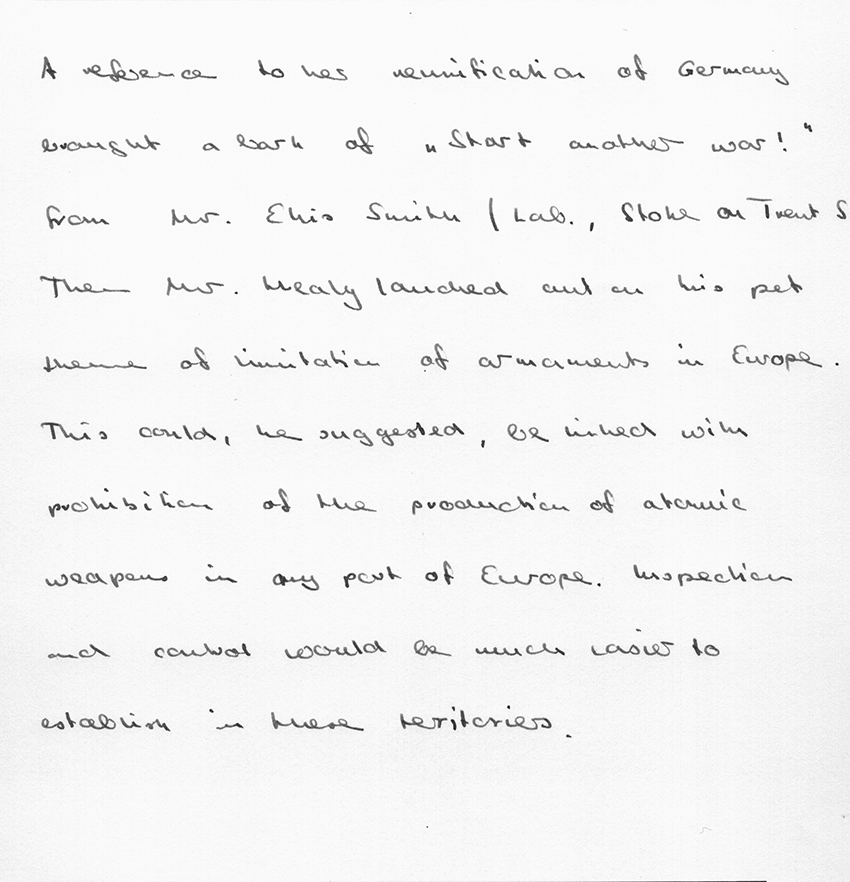 A reference to her reunification of Germany
brought a bark of „Start another war!"
from Mr. Ellis Smith (Lab., Stoke on Trent S
Then Mr. Healy lanched out on his pet
theme of limitation of armaments in Europe.
This could, he suggested, be linked with
prohibition of the production of atomic
weapons in any part of Europe. Inspection
and control would be much easier to
establish in these teritories.